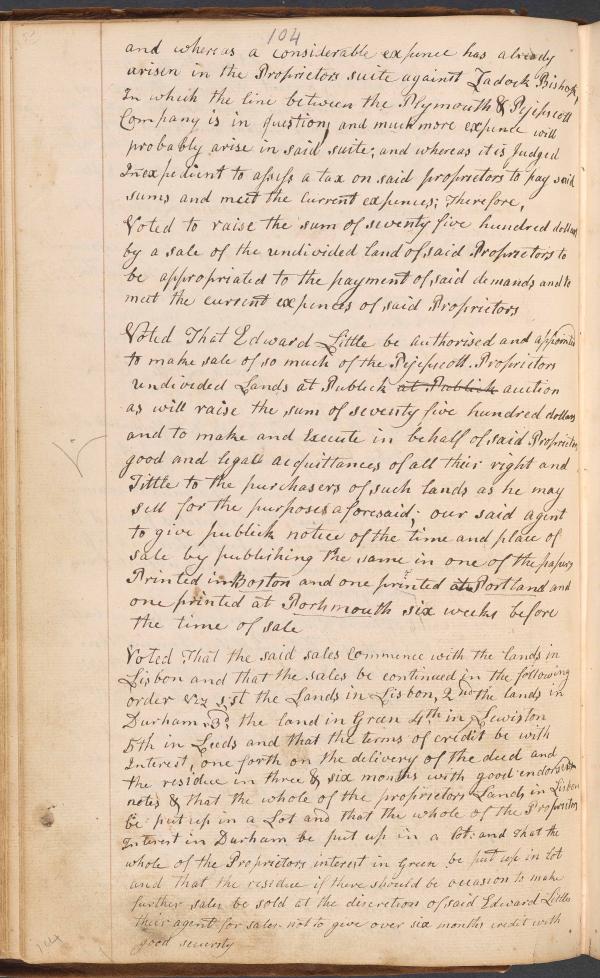 104
and whereas a considerable expence has already
arisen in the Proprietors suite against Zadock Bishop,
In which the line between the Plymouth & Pejepscott
Company is in question, and much more expence will
probably arise in said suite; and whereas it is Judged
Inexpedient to assess a tax on said proprietors to pay said
sums and meet the current expences; Therefore,
Voted to raise the sum of seventy five hundred dollars
by a sale of the undivided land of said Proprietors to
be appropriated to the payment of said demands and to
meet the current expences of said Proprietors
Voted That Edward Little be authorised and appointed
to make sale of so much of the Pejepscott Proprietors
undivided Lands at Publick at Publick auction
as will raise the sum of seventy five hundred dollars
and to make and Execute in behalf of said Proprietors
good and legal acquittances of all their right and
Tittle to the purchasers of such lands as he may
sell for the purposes aforesaid; our said agent
to give publick notice of the time and place of
sale by publishing the same in one of the papers
Printed in Boston and one printed at Portland and
one printed at Portsmouth six weeks before
the time of sale
Voted That the said sales Commence with the lands in
Lisbon and that the sales be continued in the following
order viz 1st the Lands in Lisbon, 2nd the lands in
Durham 3d, the land in Green 4th in Lewiston
5th in Leeds and that the terms of credit be with
Interest, one forth on the delivery of the deed and
the residue in three & six months with good endorsed
notes & that the whole of the proprietors Lands in Lisbon
be put up in a Lot and that the whole of the Proprietors
Interest in Durham be put up in a lot: and that the
whole of the Proprietors interest in Green be put up in lot
and that the residue if there should be occasion to make
further sales be sold at the discretion of said Edward Little
their agent for sales not to give over six months credit with
good security
104